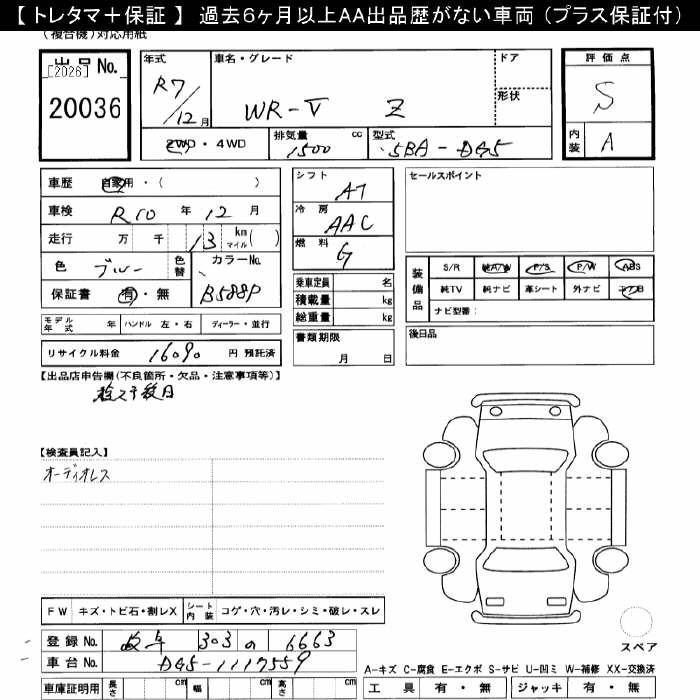 【 トレタマ＋保証 】 過去6ヶ月以上AA出品歴がない車両（プラス保証付）
（複合機）対応用紙
出品No. [2026]
20036
年式 R7/12月
車名・グレード WR-V Z
ドア
形状
評価点 S
内装 A
2WD・4WD
排気量 1500 cc
型式 5BA-DG5
車歴 自家用・( )
車検 R10年12月
走行 万 千 13 km マイル( )
色 ブルー 色替
カラーNo. B588P
保証書 有・無
シフト AT
冷房 AAC
燃料 G
乗車定員 名
積載量 kg
総重量 kg
書類期限 月 日
セールスポイント
装備品 S/R 純A/W P/S P/W ABS
純TV 純ナビ 革シート 外ナビ エアB
ナビ型番：
後日品
モデル年式 年 ハンドル 左・右 ディーラー・並行
リサイクル料金 16090 円 預託済
【出品店申告欄(不良箇所・欠品・注意事項等)】
【検査員記入】
オーディオレス
FW キズ・トビ石・割レX シート内装 コゲ・穴・汚レ・シミ・破レ・スレ
登録No. 岐阜 303 の 6663
車台No. DG5-1117559
車庫証明用 長さ cm 幅 cm 高さ cm
スペア
A-キズ C-腐食 E-エクボ S-サビ U-凹ミ W-補修 XX-交換済
工具 有・無 ジャッキ 有・無